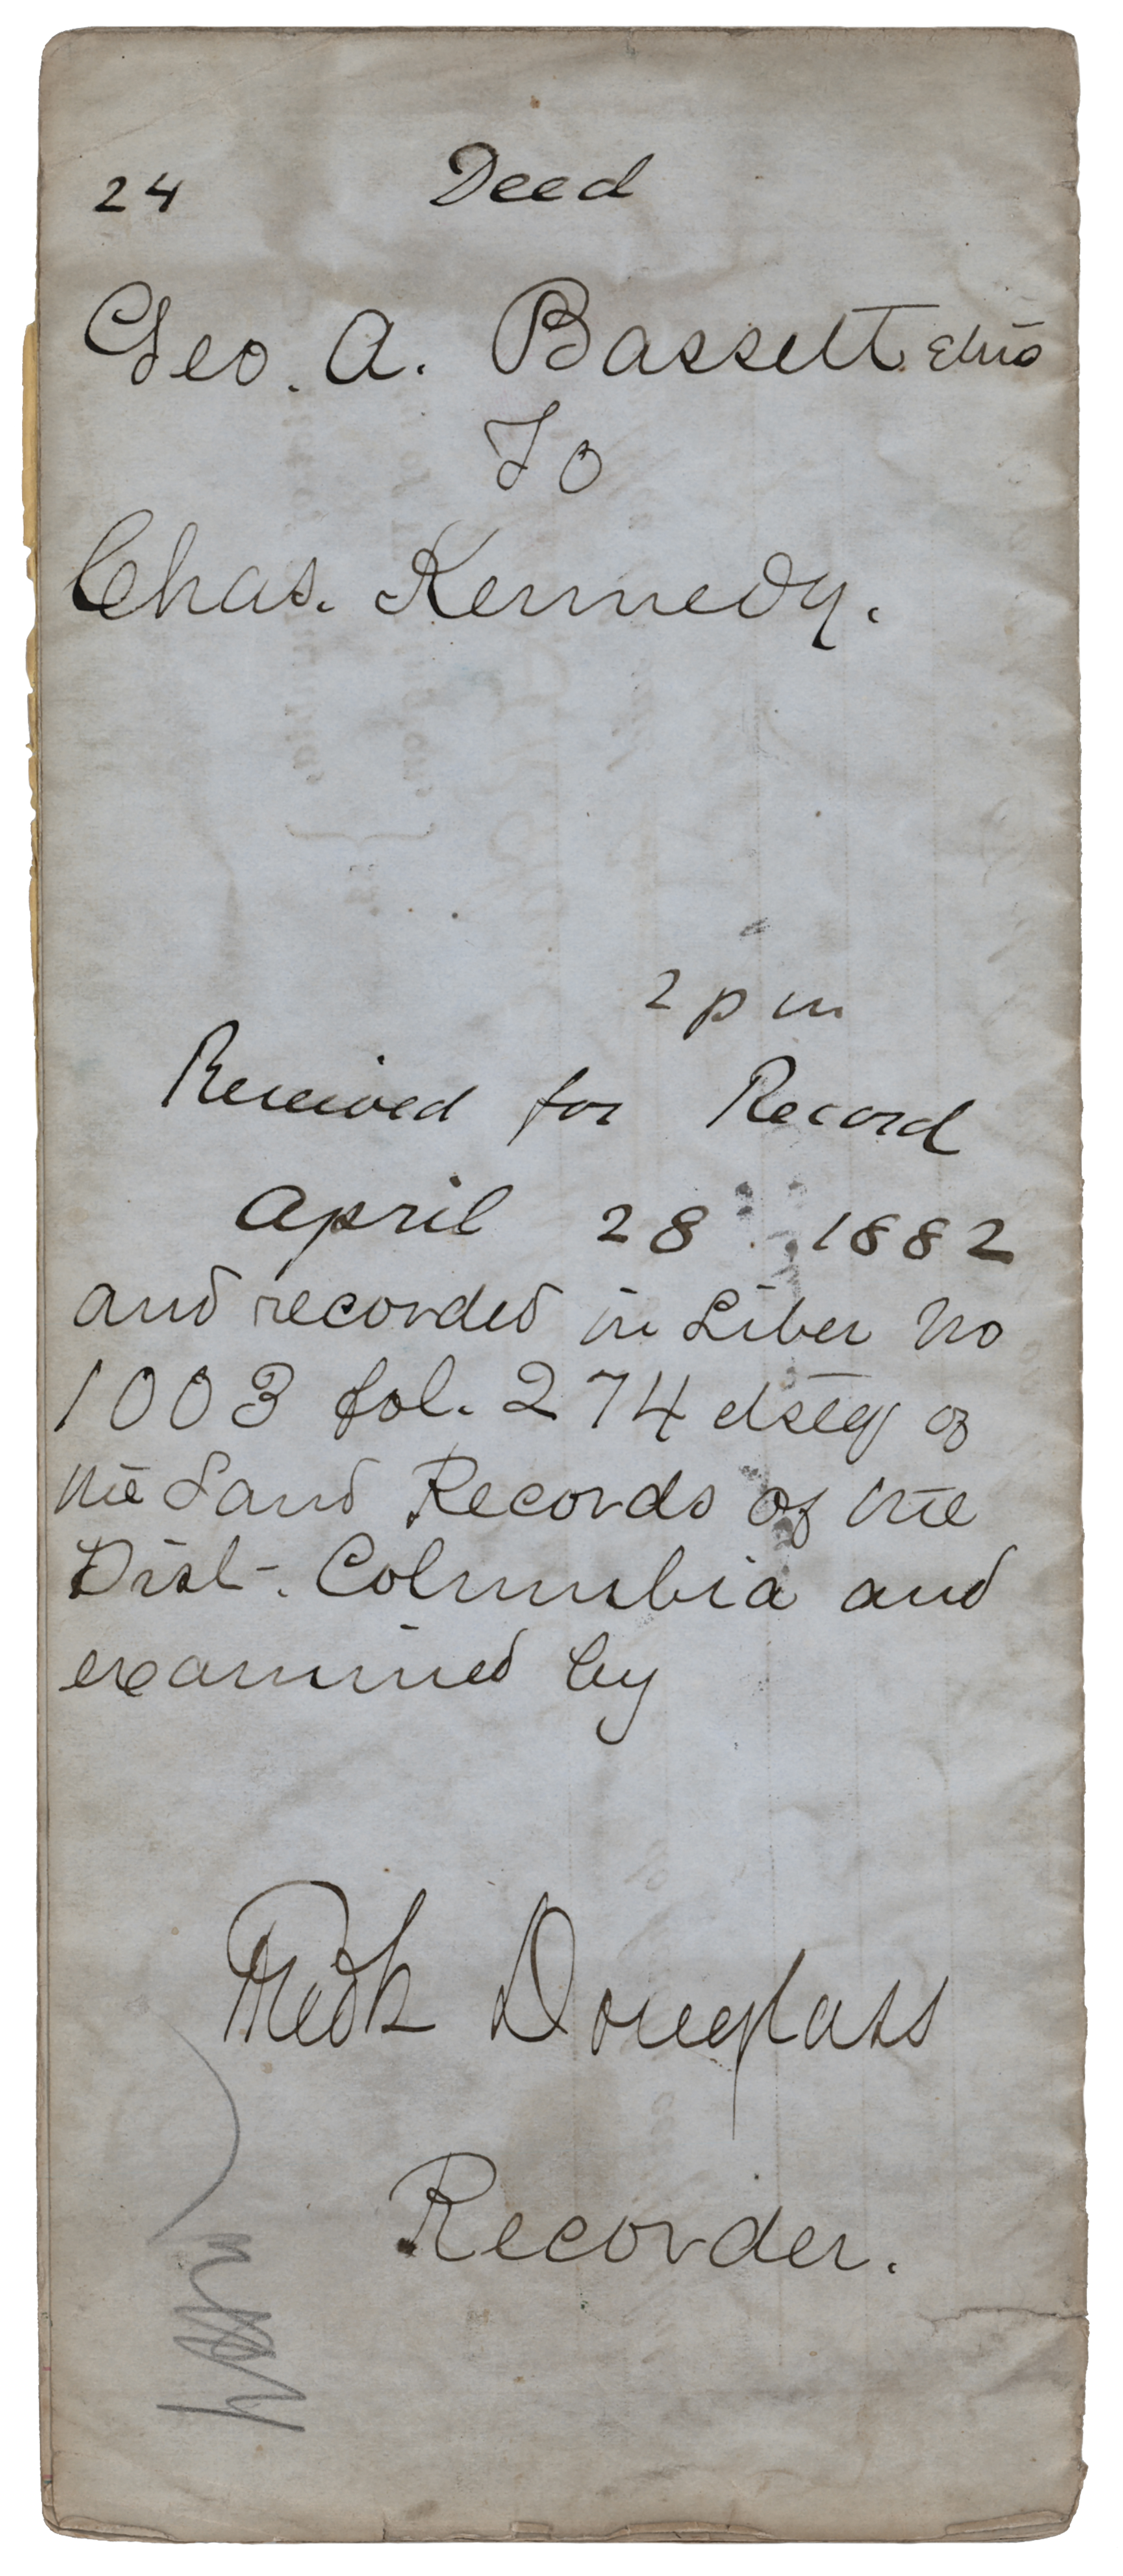 24 Deed
Geo. A. Bassett et ux
To
Chas. Kennedy.
2 pm
Received for Record
April 28 1882
and recorded in Liber No
1003 fol. 274 et seq of
the Land Records of the
Dist. Columbia and
examined by
Fredk Douglass
Recorder.